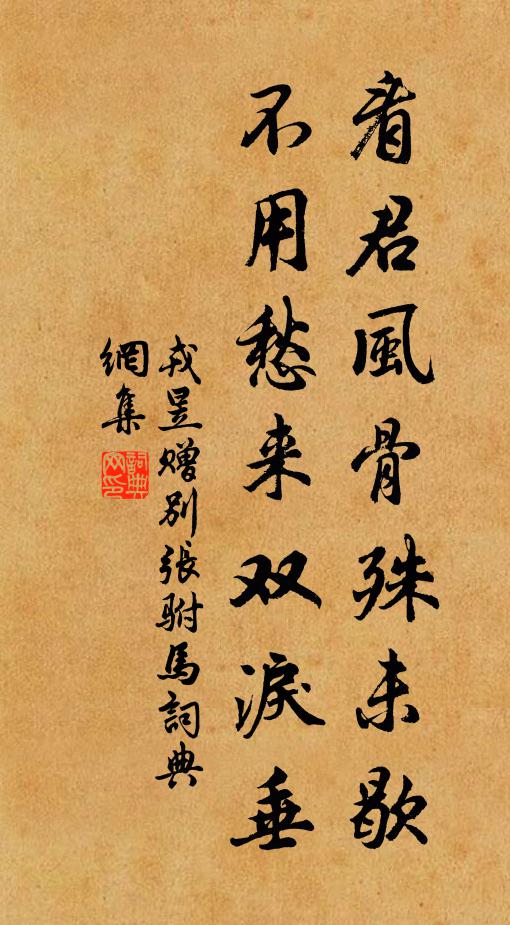 看君風骨殊未歇
不用愁来双淚垂
戎昱赠别張駙馬詞典
網集
詞典網印